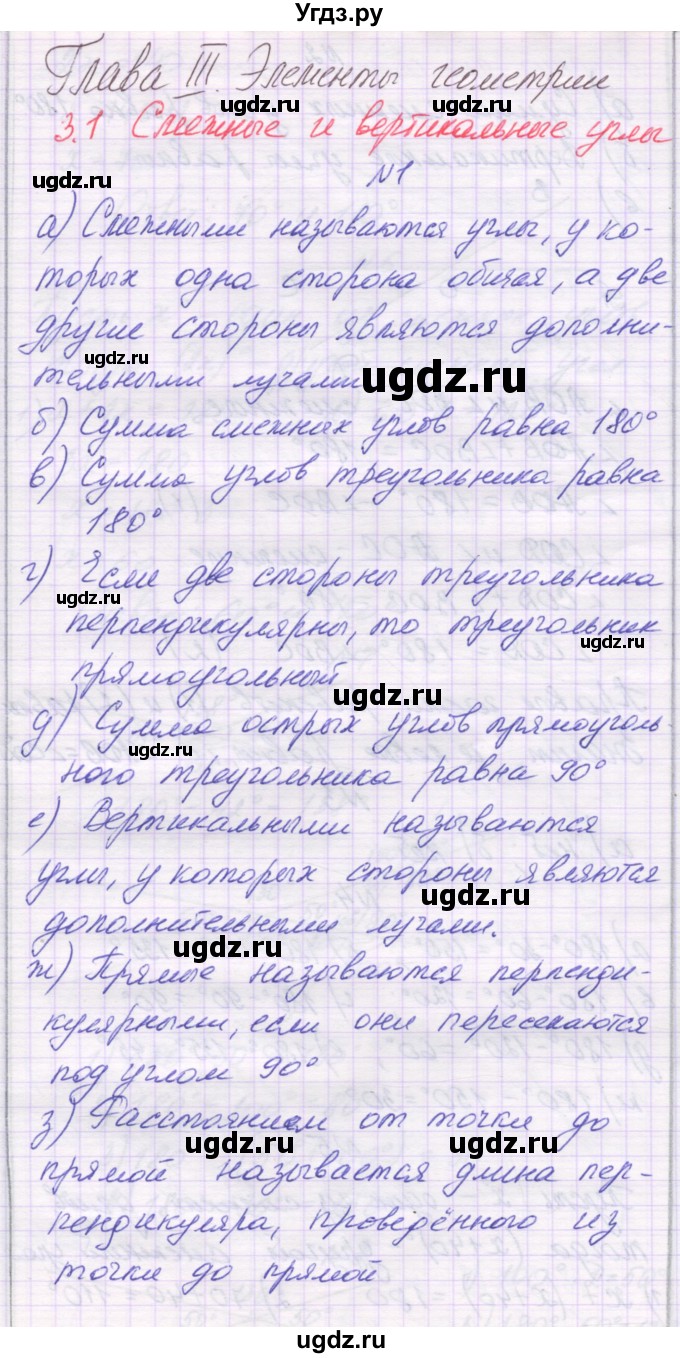 Угдз.ру
Глава III. Элементы геометрии
ugdz.ru ugdz.ru
3.1 Смежные и вертикальные углы
ugdz.ru
№1
а) Смежными называются углы, у ко-
торых одна сторона общая, а две
другие стороны являются дополни-
ugdz.ru
тельными лучами
ugdz.ru
б) Сумма смежных углов равна 180°
в) Сумма углов треугольника равна
180°
г) Если две стороны треугольника
ugdz.ru
перпендикулярны, то треугольник
ugdz.ru
прямоугольный
ugdz.ru
д) Сумма острых углов прямоуголь-
ugdz.ru
ного треугольника равна 90°
е) Вертикальными называются
углы, у которых стороны являются
ugdz.ru
дополнительными лучами.
ugdz.ru
ж) Прямые называются перпенди-
кулярными, если они пересекаются
под углом 90°
з) Расстоянием от точки до
ugdz.ru ugdz.ru
прямой называется длина пер-
пендикуляра, проведённого из
точки до прямой
ugdz.ru